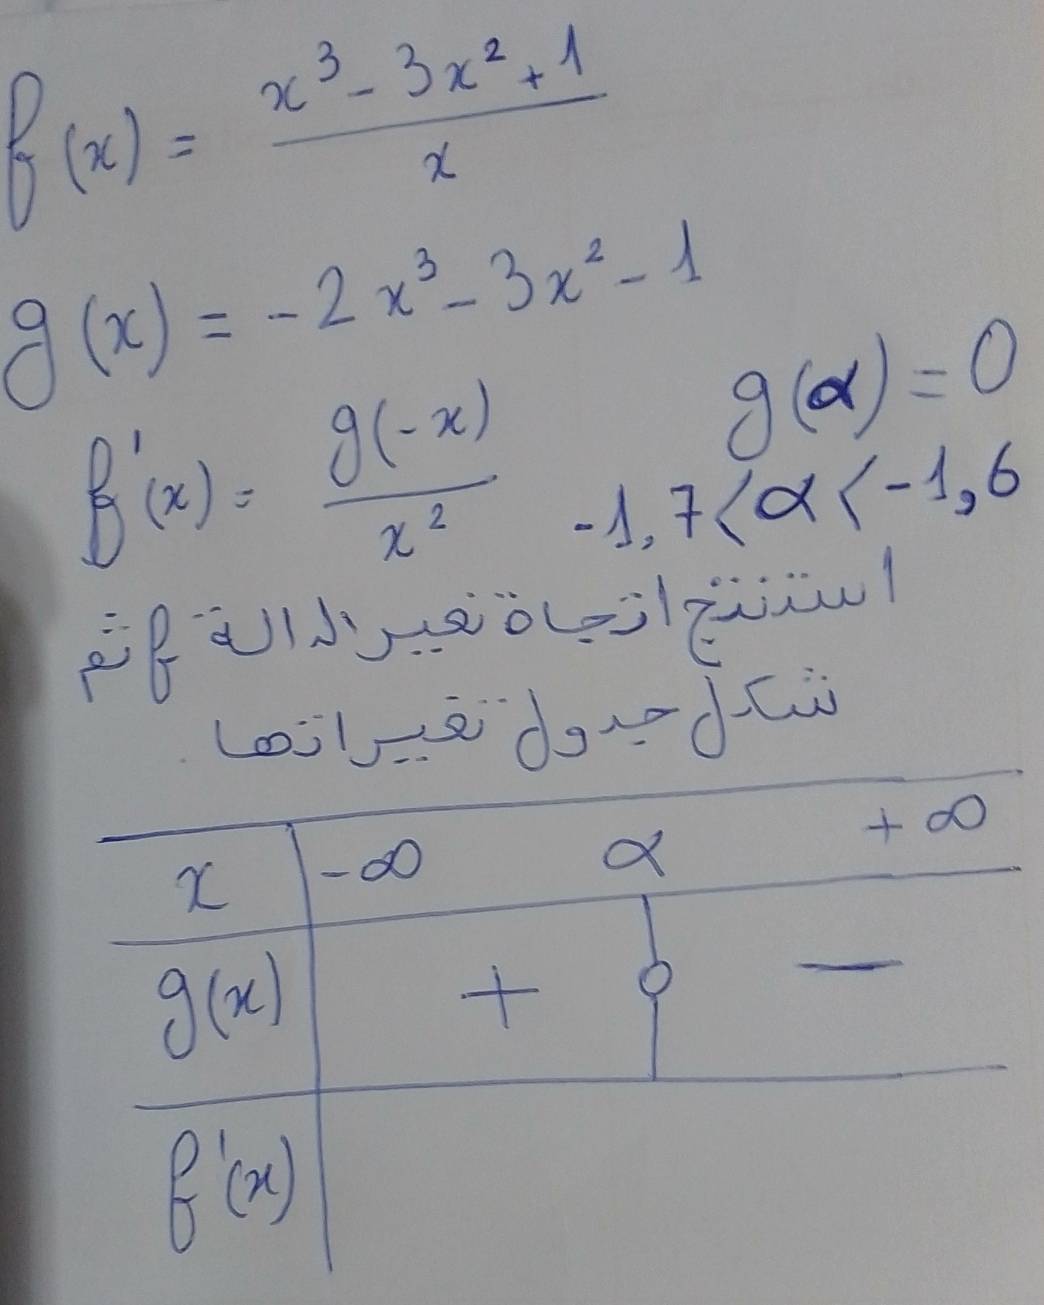 f(x) = (x³ - 3x² + 1) / x
g(x) = -2x³ - 3x² - 1
f'(x) = g(-x) / x²   g(α) = 0
-1,7 < α < -1,6
استنتج اتجاة تغير الدالة f ثم
شكل جدول تغيراتها.
x -∞ α +∞
g(x) + 0 −
f'(x)